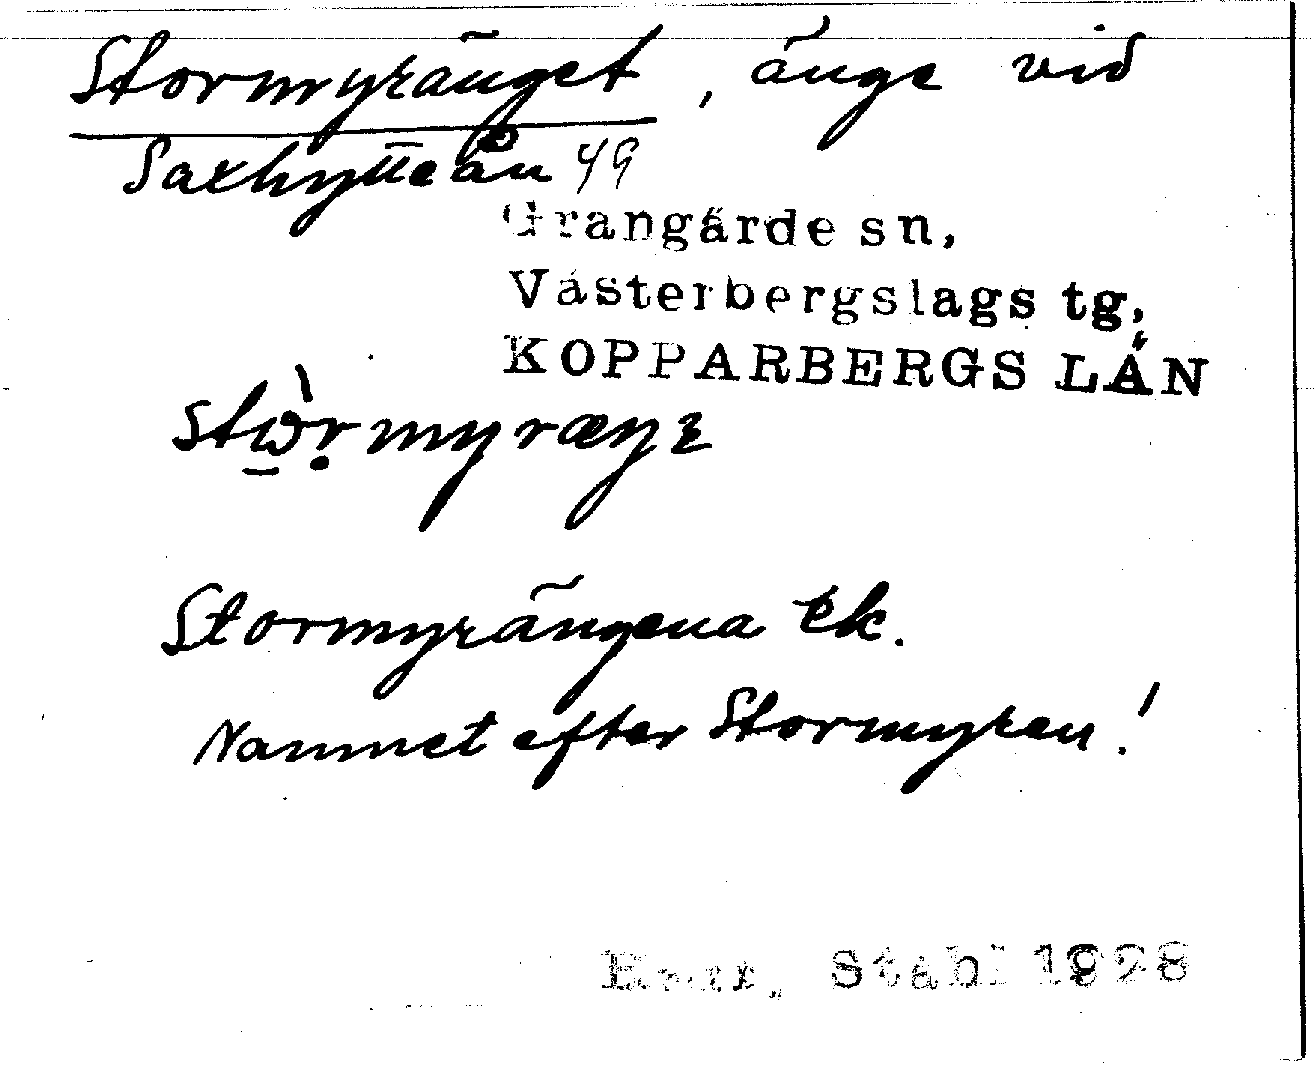 Stormyränget, änge vid
Saxhytteån 49
Grangärde sn,
Västerbergslags tg,
KOPPARBERGS LÄN
Stormyrängena Ek.
Namnet efter Stormyren!
Stahl 1928